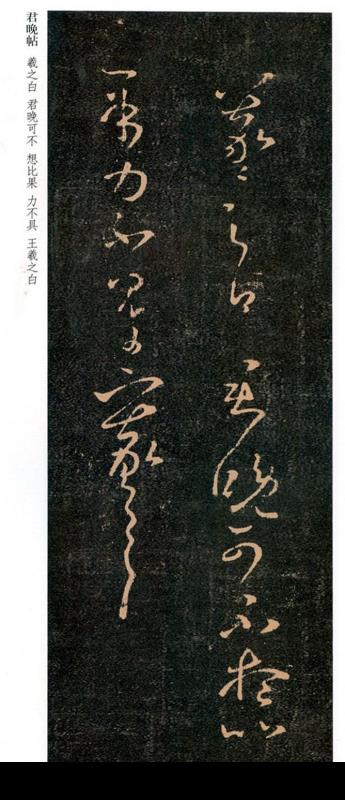 羲之白君晚可不想比
果力不具王羲之白
君晚帖 羲之白 君晚可不 想比果 力不具 王羲之白